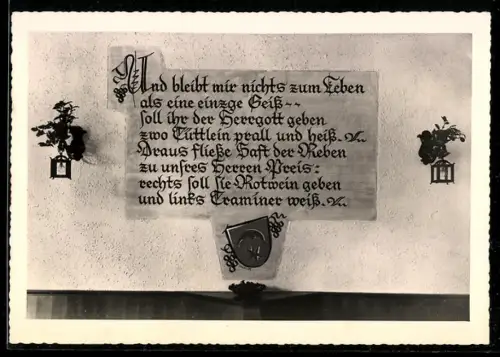 Und bleibt mir nichts zum Leben
als eine einzge Geiß~~
soll ihr der Herrgott geben
zwo Tüttlein prall und heiß.
Draus fließe Saft der Reben
zu unsres Herren Preis:
rechts soll sie Rotwein geben
und links Traminer weiß.